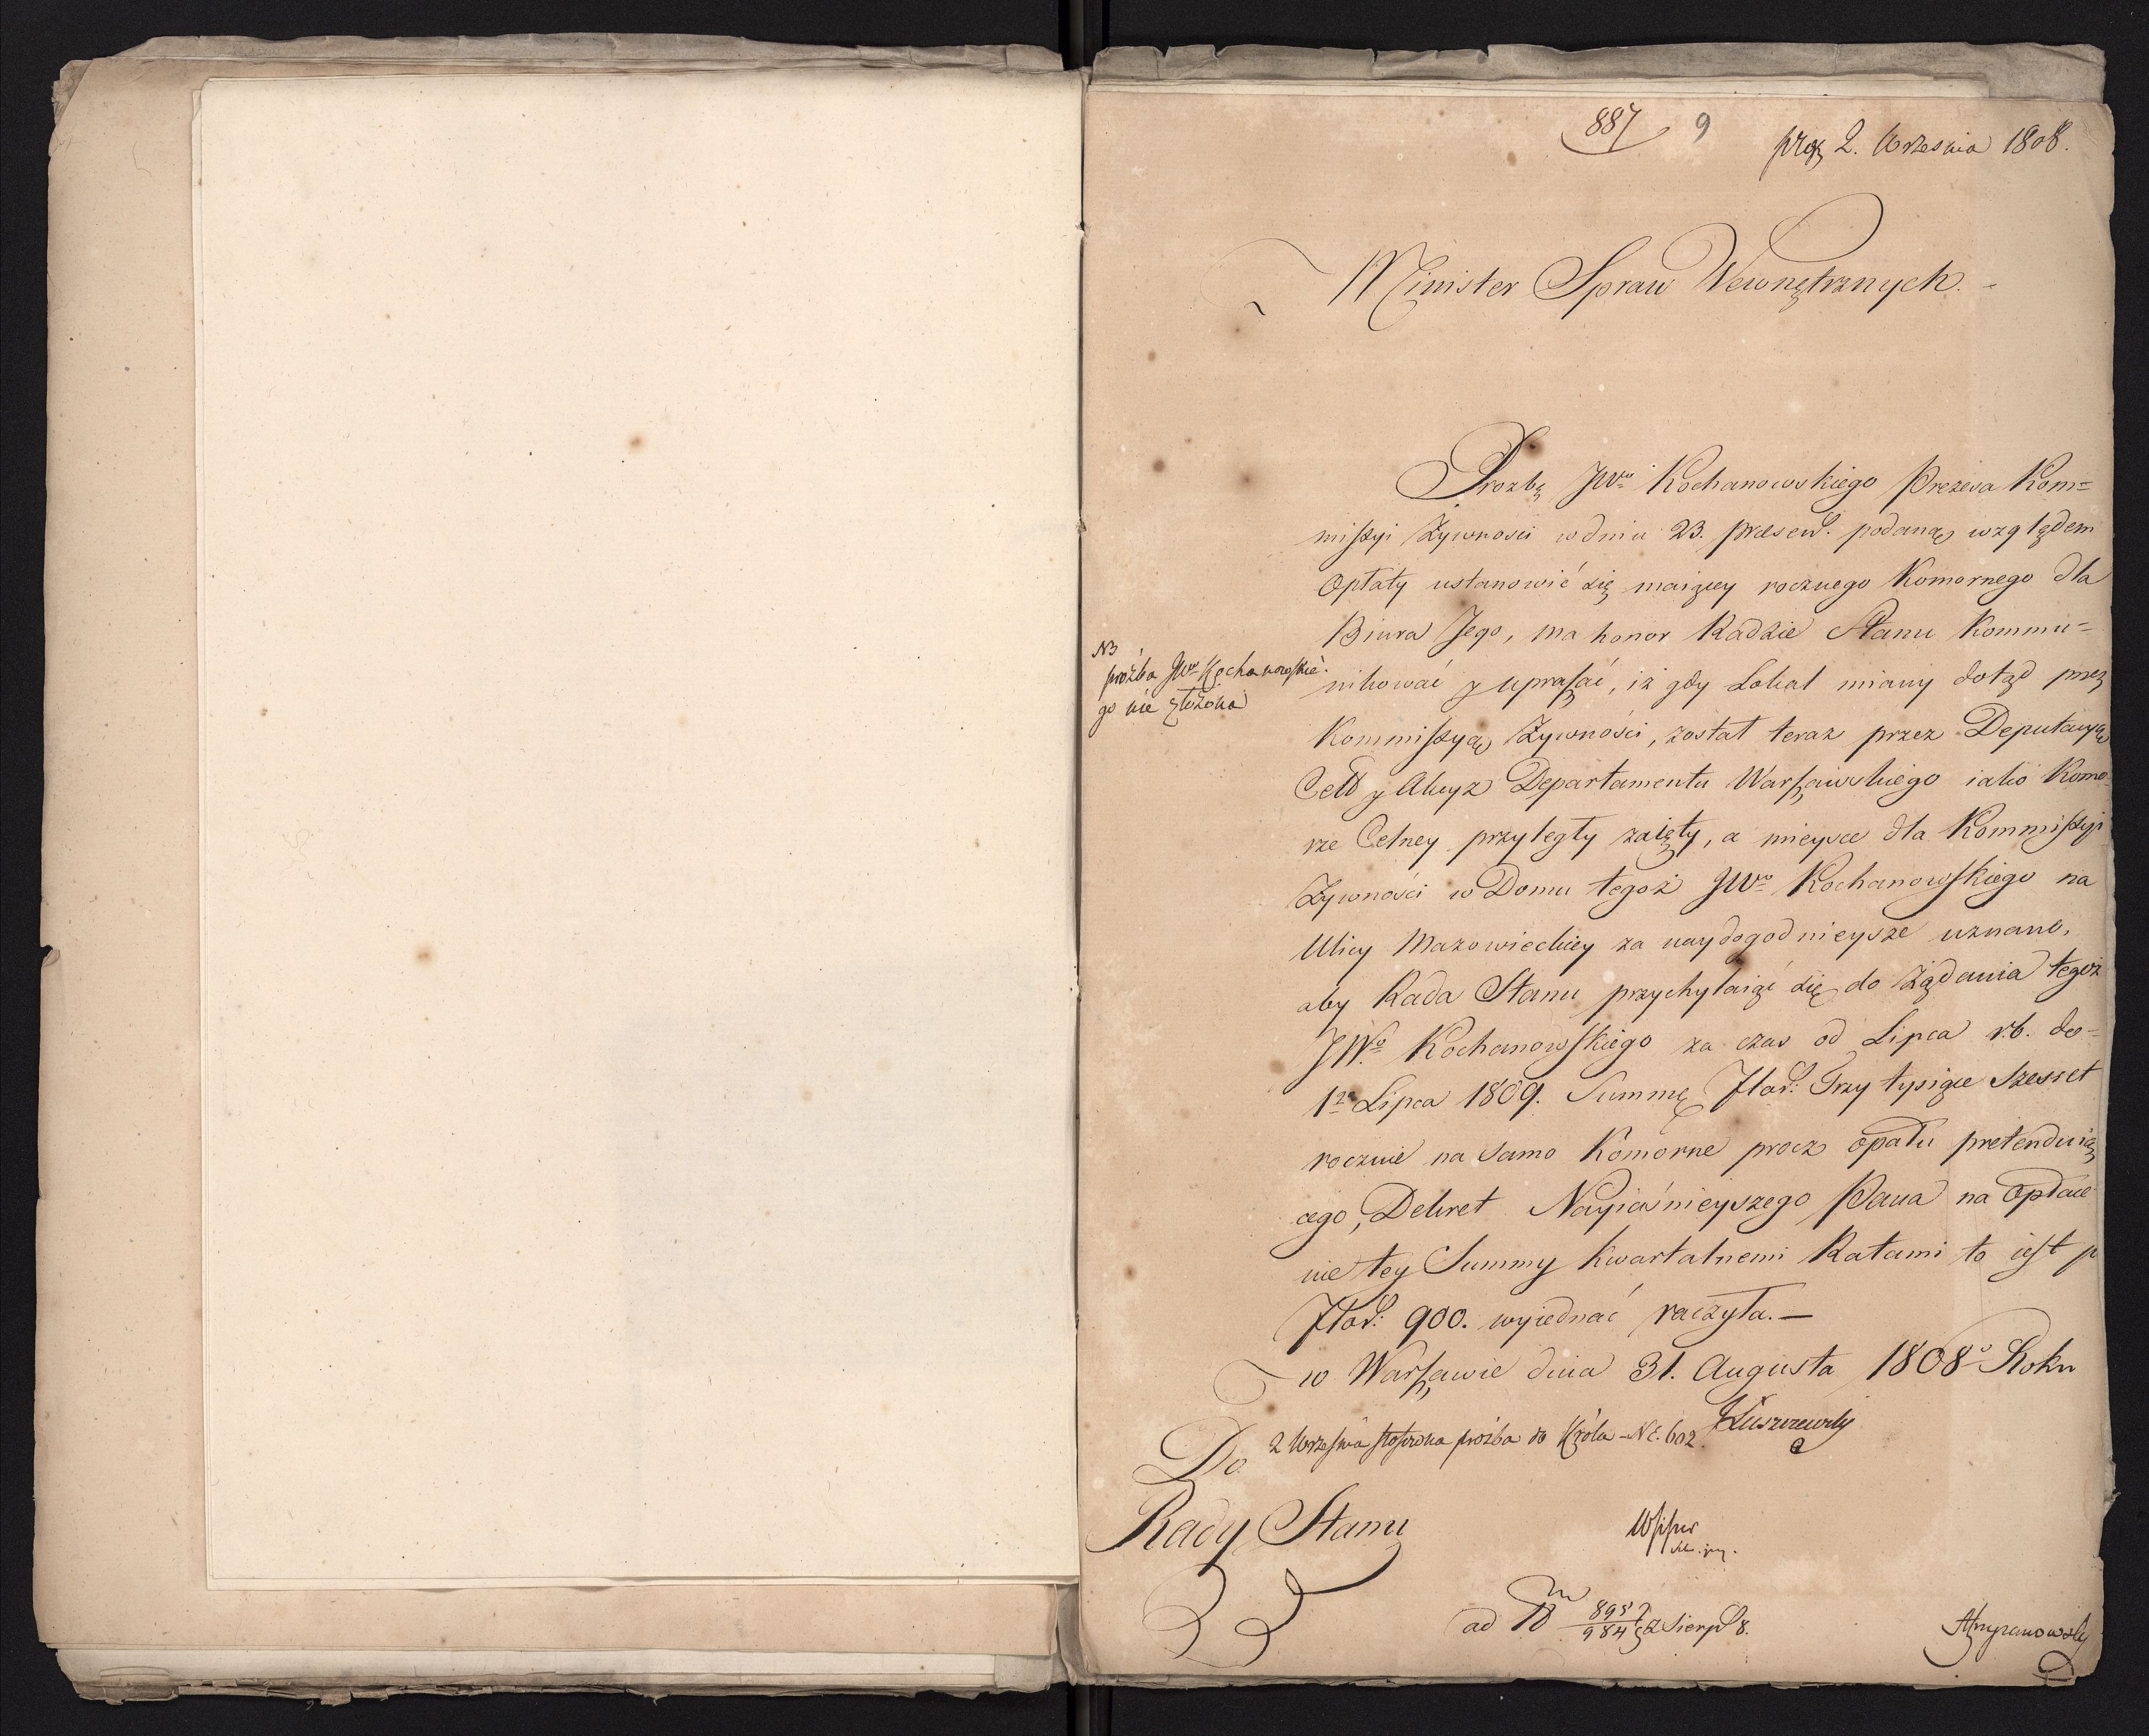 887 9
2. Wrzesnia 1808.
Minister Spraw Wewnętrznych.
Prozbę JWo Kochanowskiego Prezesa Kom=
missyi Zywnosci w dniu 23. praesen. podaną względem
Opłaty ustanowić się maiącey rocznego Komornego dla
Biura Jego, ma honor Radzie Stanu kommu=
nikować y upraszać, iż gdy Lokal miany dotąd przez
Kommissyą Zywności, został teraz przez Deputacyą
Ceł y Akcyz Departamentu Warszawskiego iako Komo
rze Celney przyległy zaięty, a mieysce dla Kommissyi
Zywności w Domu tegoż JWo Kochanowskiego na
Ulicy Mazowieckiey za naydogodnieysze uznano,
aby Rada Stanu przychylaiąć się do żądania tegoż
JWo Kochanowskiego za czas od Lipca r.b. do=
1go Lipca 1809. Summę Złot: Trzy tysiące szesset
rocznie na samo Komorne procz opału pretenduią
cego, Dekret Nayiaśnieyszego Pana na Opłace
nie tey Summy kwartalnemi Ratami to iest p
Złot: 900. wyiednać raczyła.—
w Warszawie dnia 31. Augusta 1808o Roku
NB
proźba JWo Kochanowskie
go nie złożona
Łuszczewski
2 Wrzesnia stosowna proźba do Króla – N. 602.
Do
Rady Stanu
ad N 8957/984 z Sierp 8.